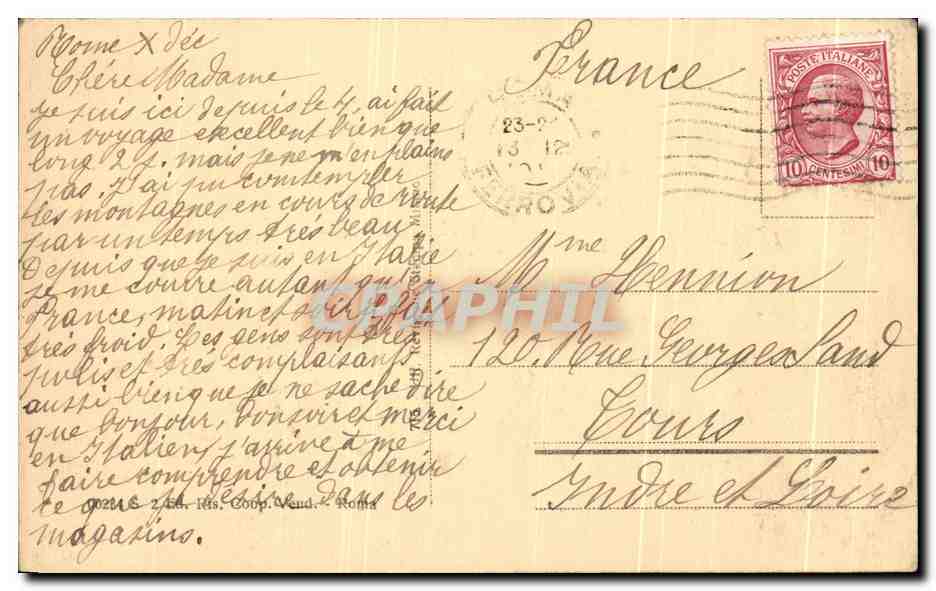 Rome X déc
Chère Madame
Je suis ici depuis le 4, ai fait
un voyage excellent bien que
long 2 j. mais je ne m'en plains
pas. J'ai pu comtempler
les montagnes en cours de route
par un temps très beau
Depuis que je suis en Italie
je me couvre autant qu'en
France, matin et soir il fait
très froid. Les gens sont très
polis et très complaisants
aussi bien que je ne sache dire
que bonjour, bonsoir et merci
en Italien, j'arrive à me
faire comprendre et obtenir
ce que je désire dans les
magasins.
2 Ed. Ris. Coop. Vend. - Roma
France
POSTE ITALIANE
10 CENTESIMI 10
23-2
13 12
FERROVIA
Mme Hennion
120 Rue Georges Sand
Tours
Indre et Loire
CPAPHIL